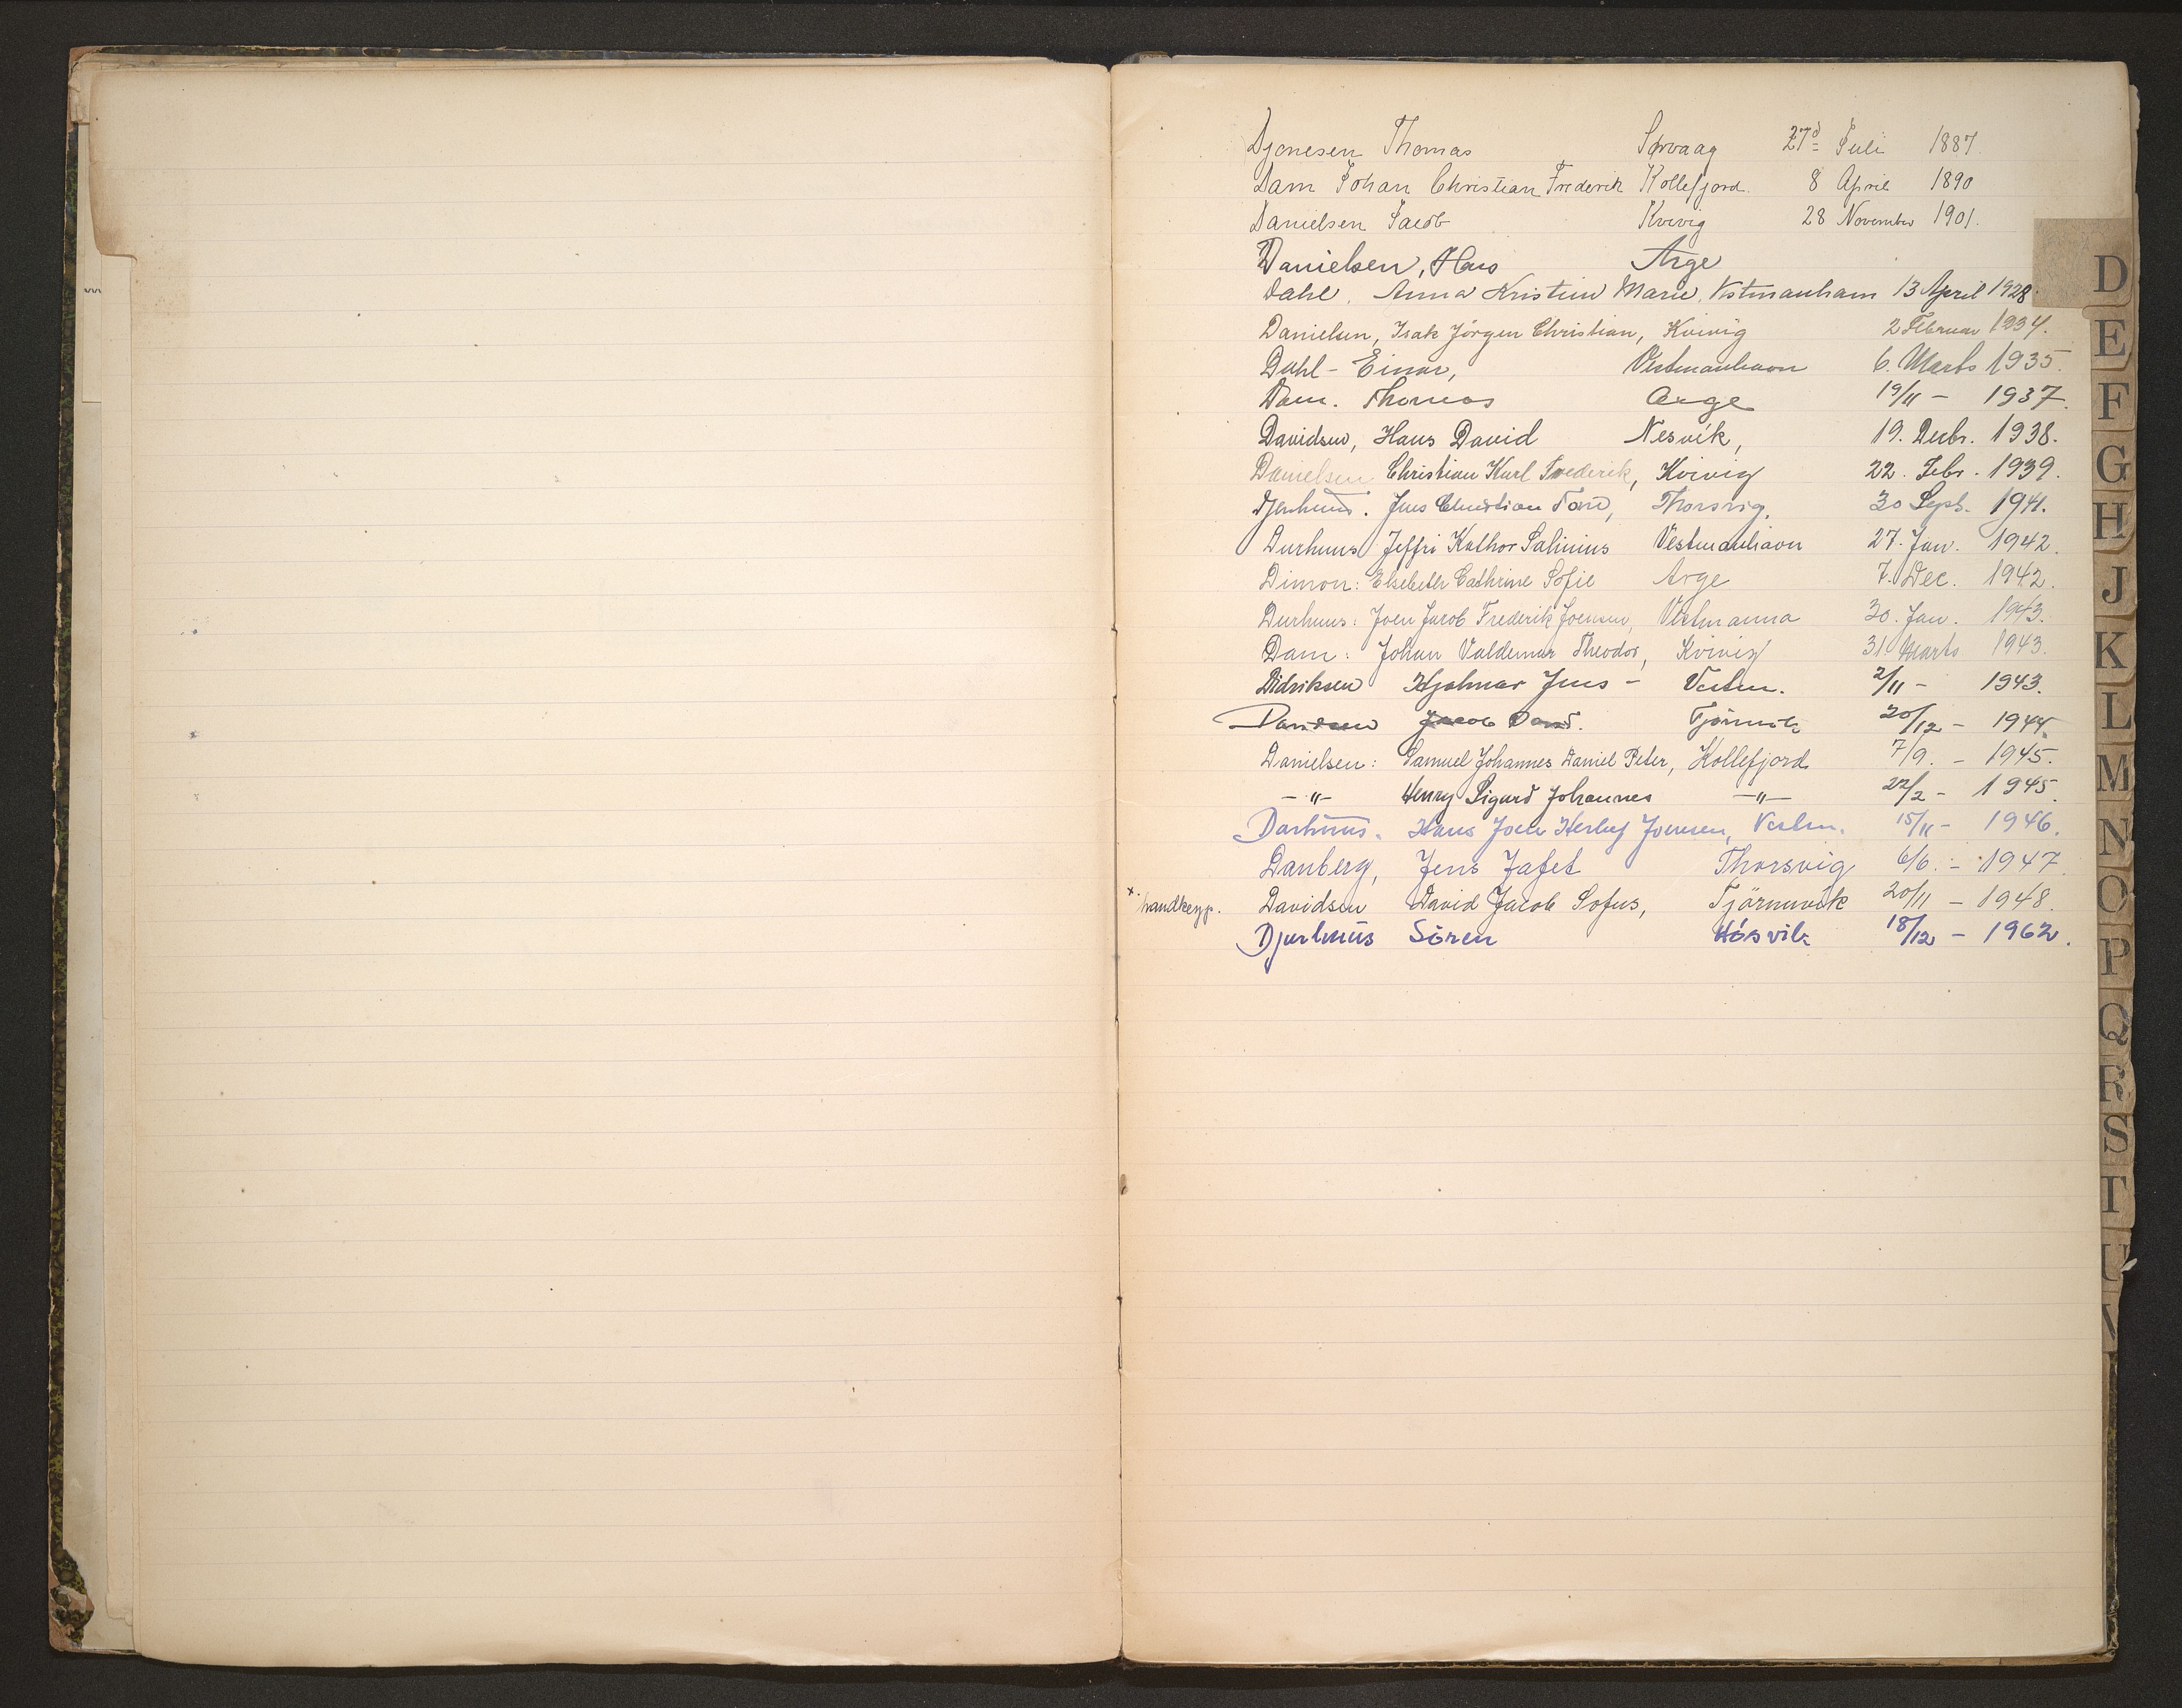 Djonesen Thomas Sørvaag 27d Juli 1887
Dam Johan Christian Frederik Kollefjord. 8 April 1890
Danielsen Jacob Kvivig 28 November 1901.
Danielsen, Hans Arge
Dahl, Anna Kristine Marie, Vestmanham 13 April 1928.
Danielsen, Isak Jörgen Christian, Kvivig 2 Februar 1934.
Dahl - Einar, Vestmanhavn 6. Marts 1935.
Dam. Thomas Arge 19/11 - 1937.
Davidsen, Hans David Nesvík, 19. Decbr. 1938.
Danielsen Christian Karl Frederik, Kvivig 22. Febr. 1939.
Djurhuus. Jens Christian Thorsvig, 30 Sept. 1941.
Durhuus Jeffri Kathor Salinius Vestmanhavn 27. Jan. 1942.
Dimon: Elsebeth Cathrine Sofie Arge 7. Dec. 1942.
Durhuus: Joen Jacob Frederik Joensen, Vestmanna 30. Jan. 1943.
Dam: Johan Valdemar Theodor, Kvivig 31 Marts 1943.
Didriksen Hjalmar Jens - Vestm. 2/11 - 1943.
Davidsen Jacob David. Tjörnuvik 20/12 - 1944.
Danielsen: Samuel Johannes Daniel Peter, Kollefjord 7/9. - 1945.
-"- Henry Sigurd Johannes -"- 22/2 - 1945.
Durhuus. Hans Joen Herluf Joensen, Vestm. 15/11 - 1946.
Danberg, Jens Jafet Thorsvig 6/6. - 1947.
x handkeyp. Davidsen David Jacob Sofus, Tjörnuvik 20/11 - 1948.
Djurhuus Sören Hósvík 18/12 - 1962.
D
E
F
G
H
J
K
L
M
N
O
P
Q
R
S
T
U